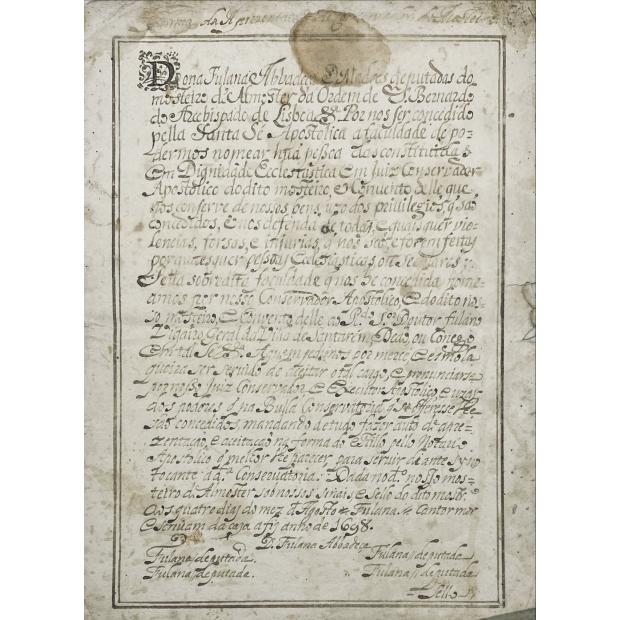 Dona Fulana Abbadeça E Madres deputadas do
mosteiro de Almoster da Ordem de S. Bernardo
do Arcebispado de Lisboa &ª. Por nos ser concedido
pella Santa Sé Apostolica a faculdade de po-
dermos nomear huã pessoa das constituidas
Em Dignidade Ecclesiastica Em Juiz Conservador
Apostolico do dito mosteiro, e Convento delle que
nos conserve de nossos bens, uzo dos privilegios, q nos sao
concedidos, e nos defenda de todas, e quaisquer vio-
lencias, forsas, e injurias, q nos são, e forem feitas
por quaesquer pessoas Ecclesiasticas, ou Seculares
Pella sobredita faculdade q nos he concedida nome-
amos por nosso Conservador Apostolico e do dito nos-
so mosteiro, e Convento delle ao R.do S.or Doutor fulano
Vigairo Geral da Villa de Santarem, Deão, ou Conego
da tal Sé. A quem pedimos por merce, e esmola
queira ser servido de aceitar o tal cargo, e pronunciarse
por nosso Juiz Conservador, e Executor Apostolico, e uzar
dos poderes q na Bulla Conservatoria q se offerese lhe
são concedidos, mandando de tudo fazer auto de apre-
zentação, e aceitação na forma do Estillo pello Notario
Apostolico q melhor lhe parecer para servir de ante sy no
tocante a d.ª Conservatoria. Dada no d.º nosso mos-
teiro d'Almoster sob nossos sinais, e Sello do dito most.ro
Aos quatro dias do mez d'Agosto Fulana Cantor mor
e Escrivam da caza a fiz anho de 1698.
D. Fulana Abbadeça
Fulana, deputada. Fulana, deputada
Fulana, deputada. Fulana, deputada
Sello